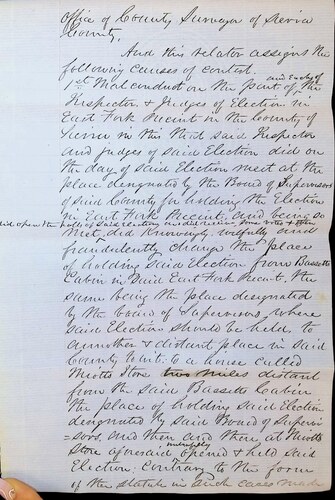 Office of County Surveyor of Sierra
County,
And this relator assigns the
following causes of contest.
and Each of
1st Mal conduct on the part of the
Inspector & Judges of Election in
East Fork Precinct in the County of
Sierra in this that said Inspector
and Judges of said Election did on
the day of said Election meet at the
place designated by the Board of Supervisors
of said County for holding the Election
in East Fork Precinct, and being so
did open the polls of said election and receive votes &
Met, did Knowingly, wilfully and
fraudulently change the place
of holding said Election from Bassetts
Cabin in said East Fork Precinct, the
same being the place designated
by the board of Supervisors, where
said Election should be held, to
another & distant place in said
County to wit: to a house called
Miotts Store two miles distant
from the said Bassetts Cabin
the place of holding said Election
designated by said Board of Supervi
-sors and then and there at Miotts
wilfully
Store aforesaid opened & held said
Election: Contrary to the form
of the statute in such cases made